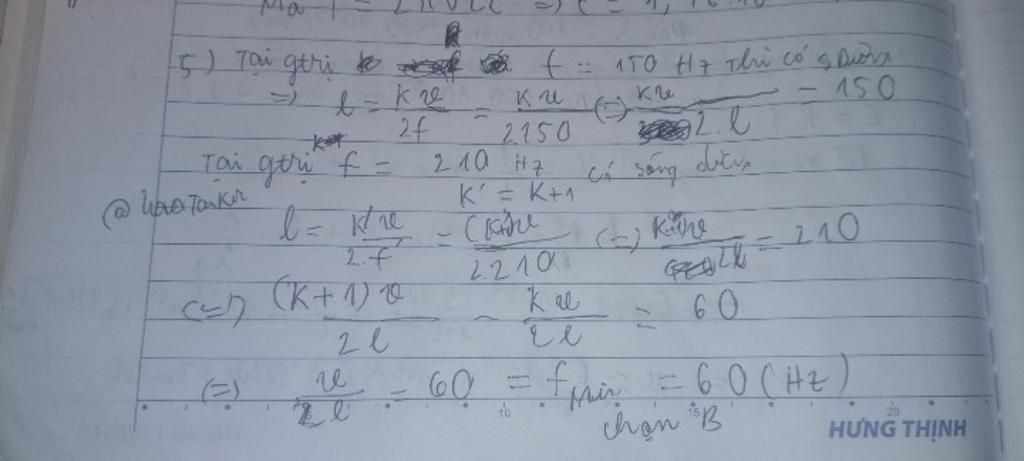 5) Tại gtrị f = 150 Hz thì có s dừng
=> l = kv/2f = kv/2.150 (=) kv/2.l = 150
Tại gtrị f = 210 Hz có sóng dừng
K' = K+1
l = k'v/2.f' = (k+1)v/2.210 (=) (k+1)v/2l = 210
(=) (K+1)v/2l - kv/2l = 60
(=) v/2l = 60 = fmin = 60 (Hz)
chọn B
10 15 20
HƯNG THỊNH